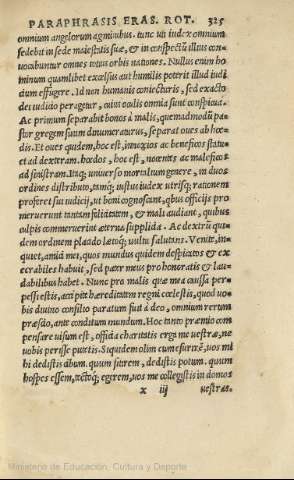 PARAPHRASIS ERAS. ROT. 325
omnium angelorum agminibus. tunc ut iudex omnium
sedebit in sede maiestatis suæ, & in conspectũ illius con-
uocabuntur omnes totius orbis nationes. Nullus enim ho
minum quamlibet excelsus aut humilis poterit illud iudi
cium effugere. Id non humanis coniecturis, sed exacto
dei iudicio peragetur, cuius oculis omnia sunt conspicua.
Ac primum separabit bonos à malis, quemadmodũ pa-
stor gregem suum dinumeraturus, separat oues ab hœ-
dis. Et oues quidem, hoc est, innoxios ac beneficos statu-
et ad dextram. hœdos, hoc est, nocentes ac maleficos
ad sinistram. Itaq; uniuerso mortalium genere, in duos
ordines distributo, tanq; iustus iudex utrisq; rationem
proferet sui iudicij, ut boni cognoscant, qbus officijs pro
meruerunt tantam fœlicitatem, & mali audiant, quibus
culpis commeruerint æterna supplicia. Ac dextrũ qui-
dem ordinem placido lætoq; uultu salutans. Venite, in-
quiet, amici mei, quos mundus quidem despicatos & ex
ecrabiles habuit, sed pater meus pro honoratis & lau-
dabilibus habet. Nunc pro malis quæ mea caussa per-
pessi estis, accipite hæreditatem regni cœlestis, quod uo-
bis diuino consilio paratum fuit à deo, omnium rerum
præscio, ante conditum mundum. Hoc tanto præmio com
pensare uisum est, officia charitatis erga me uestræ, ne
uobis perisse putetis. Siquidem olim cum esurirẽ, uos mi
hi dedistis cibum. quum sitirem, dedistis potum. quum
hospes essem, tectoq; egerem, uos me collegistis in domos
x iij uestras.
Ministerio de Educación, Cultura y Deporte